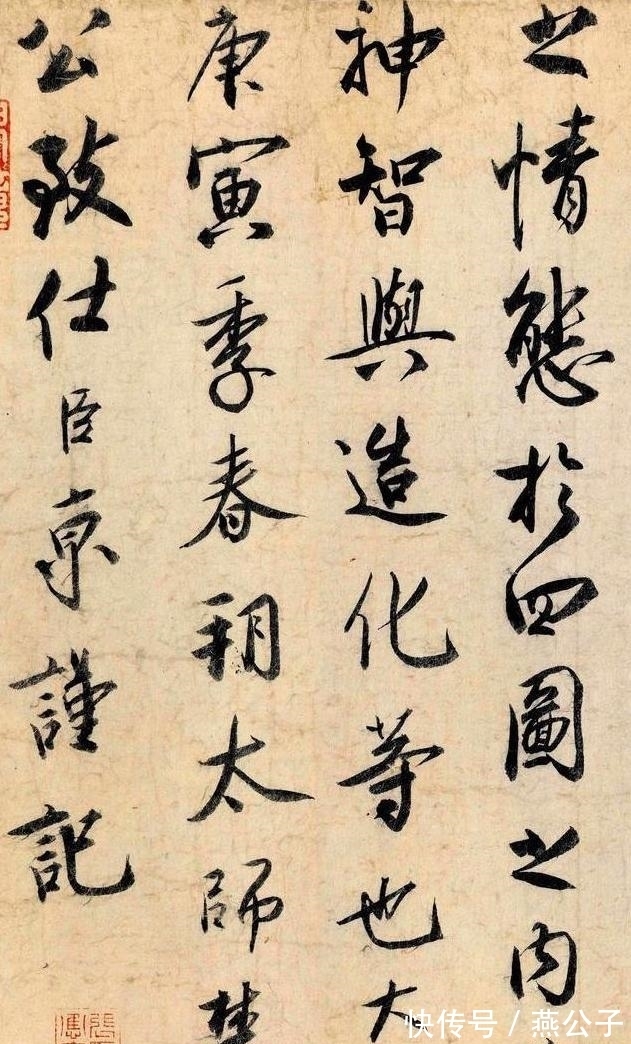 之情態於四圖之内
神智與造化等也大
庚寅季春朔太師楚
公致仕臣京謹記
快传号 / 燕公子